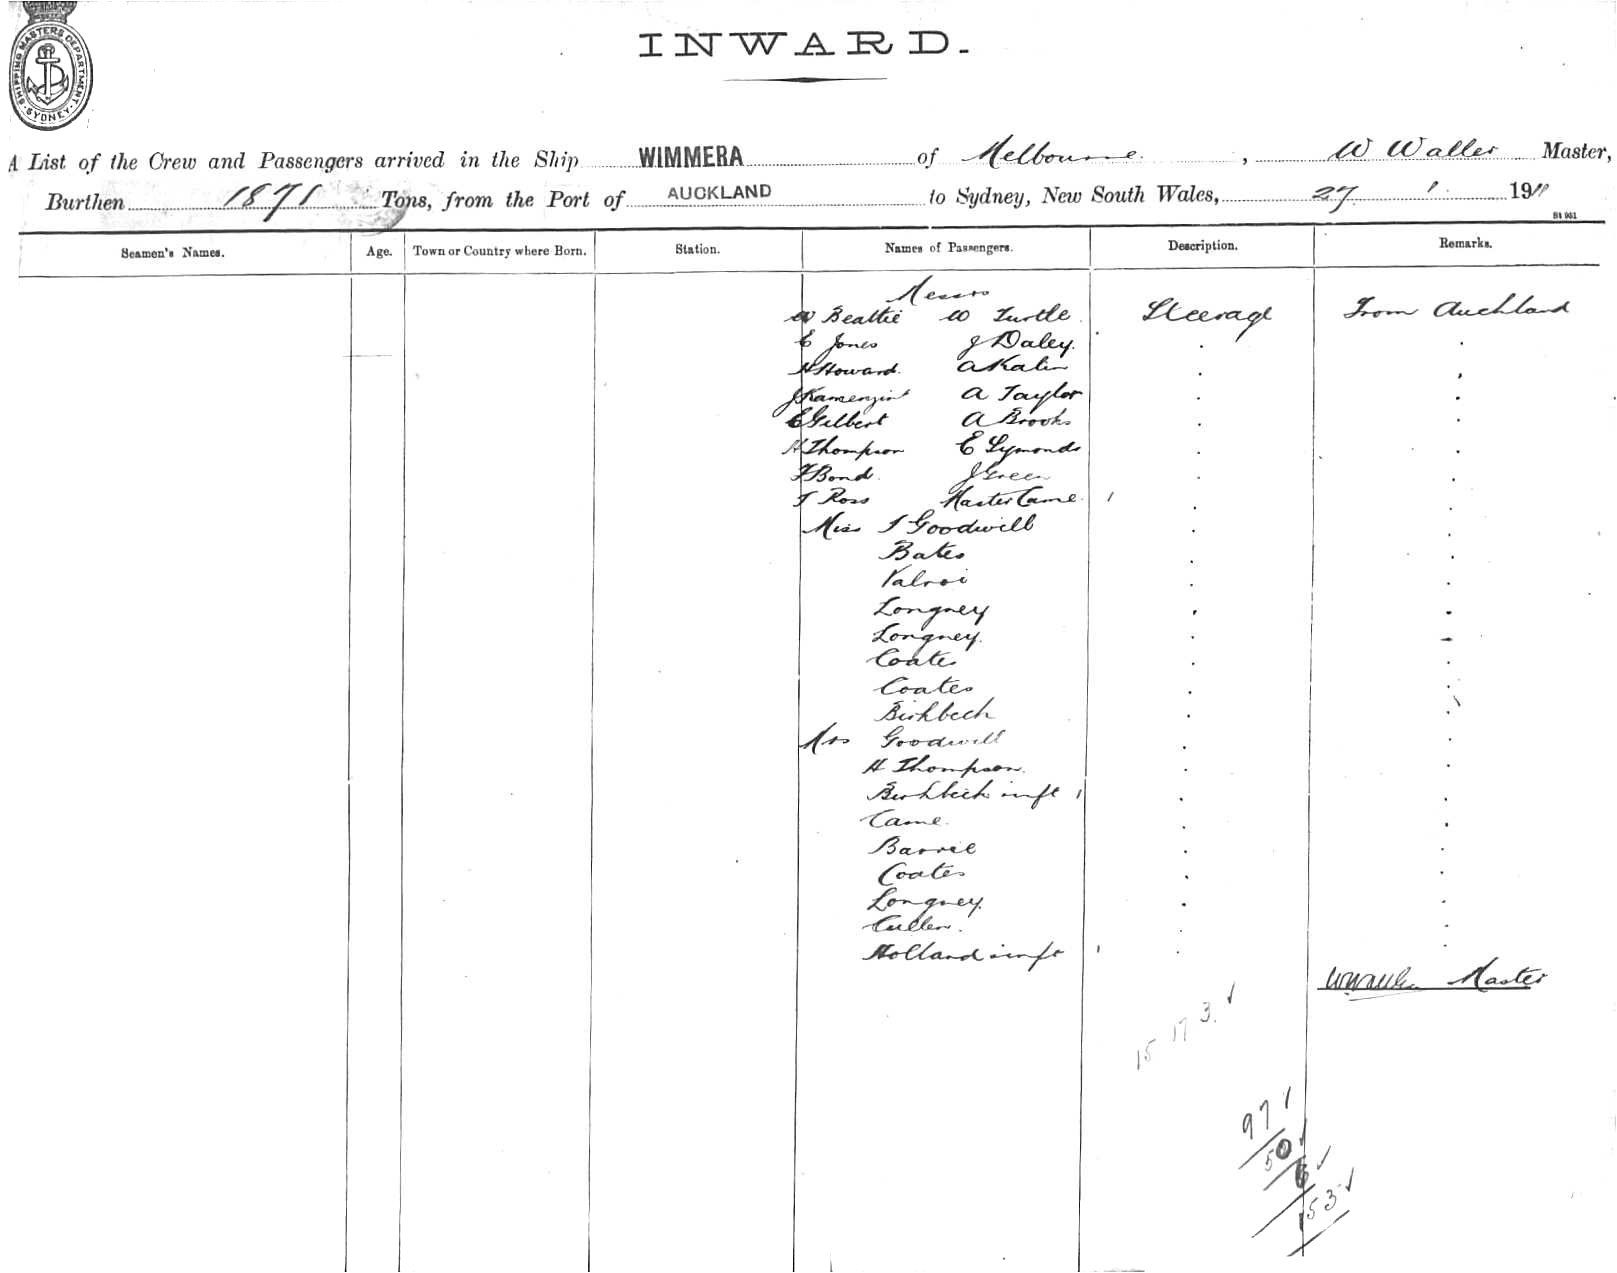 SHIPPING MASTERS DEPARTMENT
SYDNEY
INWARD.
A List of the Crew and Passengers arrived in the Ship WIMMERA of Melbourne, W Waller Master,
Burthen 1871 Tons, from the Port of AUCKLAND to Sydney, New South Wales, 27 1 19
St 951
Seamen's Names. Age. Town or Country where Born. Station. Names of Passengers. Description. Remarks.
Messrs
W Beattie W Turtle Steerage From Auckland
E Jones J Daley
H Howard A Kalin
J Kamenzint A Taylor
E Gilbert A Brooks
H Thompson E Symonds
F Bond J Green
T Ross Master Came 1
Miss I Goodwill
Bates
Longney
Longney
Coates
Coates
Birkbeck
Mrs Goodwill
H Thompson
Birkbeck inft 1
Came
Barrie
Coates
Longney
Cullen
Holland inft 1
W Waller Master
15 17 3
97
50
6
153